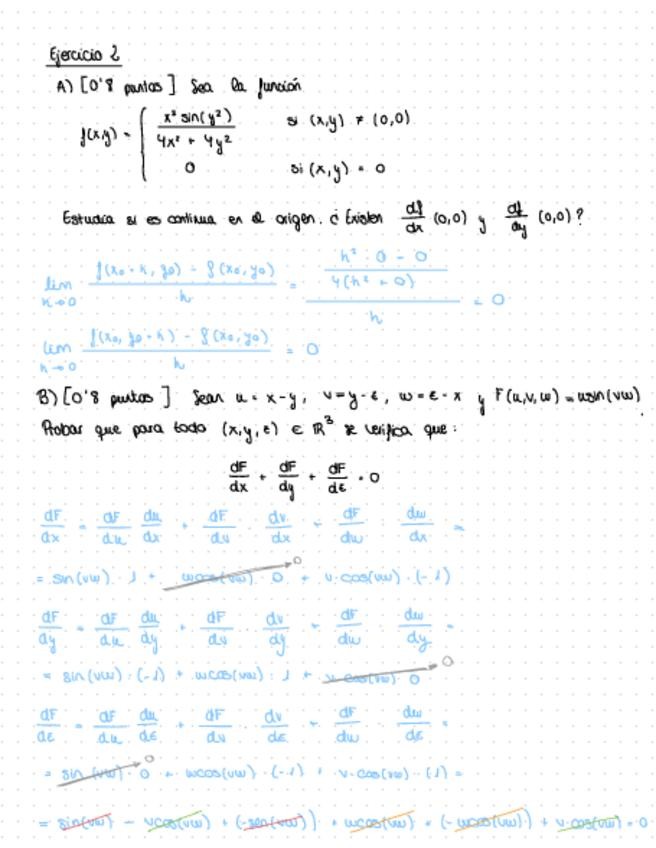 Ejercicio 2
A) [0'8 puntos] Sea la función
f(x,y) = { x² sin(y²) / 4x² + 4y² si (x,y) ≠ (0,0)
0 si (x,y) = 0
Estudia si es continua en el origen. ¿Existen df/dx (0,0) y df/dy (0,0)?
lim h→0 f(x₀+h, y₀) - f(x₀,y₀) / h = h² · 0 - 0 / 4(h² + 0) / h = 0
lim h→0 f(x₀, y₀+h) - f(x₀,y₀) / h = 0
B) [0'8 puntos] Sean u = x-y, v = y-z, w = z-x y F(u,v,w) = usin(vw)
Probar que para todo (x,y,z) ∈ ℝ³ se verifica que:
dF/dx + dF/dy + dF/dz = 0
dF/dx = dF/du du/dx + dF/dv · dv/dx + dF/dw · dw/dx =
= sin(vw) · 1 + wcos(vw) · 0 0 + v·cos(vw) · (-1)
dF/dy = dF/du du/dy + dF/dv · dv/dy + dF/dw · dw/dy =
= sin(vw) · (-1) + wcos(vw) · 1 + v·cos(vw) · 0 0
dF/dz = dF/du du/dz + dF/dv dv/dz + dF/dw · dw/dz =
= sin(vw) · 0 0 + wcos(vw) · (-1) + v·cos(vw) · (1) =
= sin(vw) - vcos(vw) + (-sen(vw)) + wcos(vw) + (-wcos(vw)) + v·cos(vw) = 0